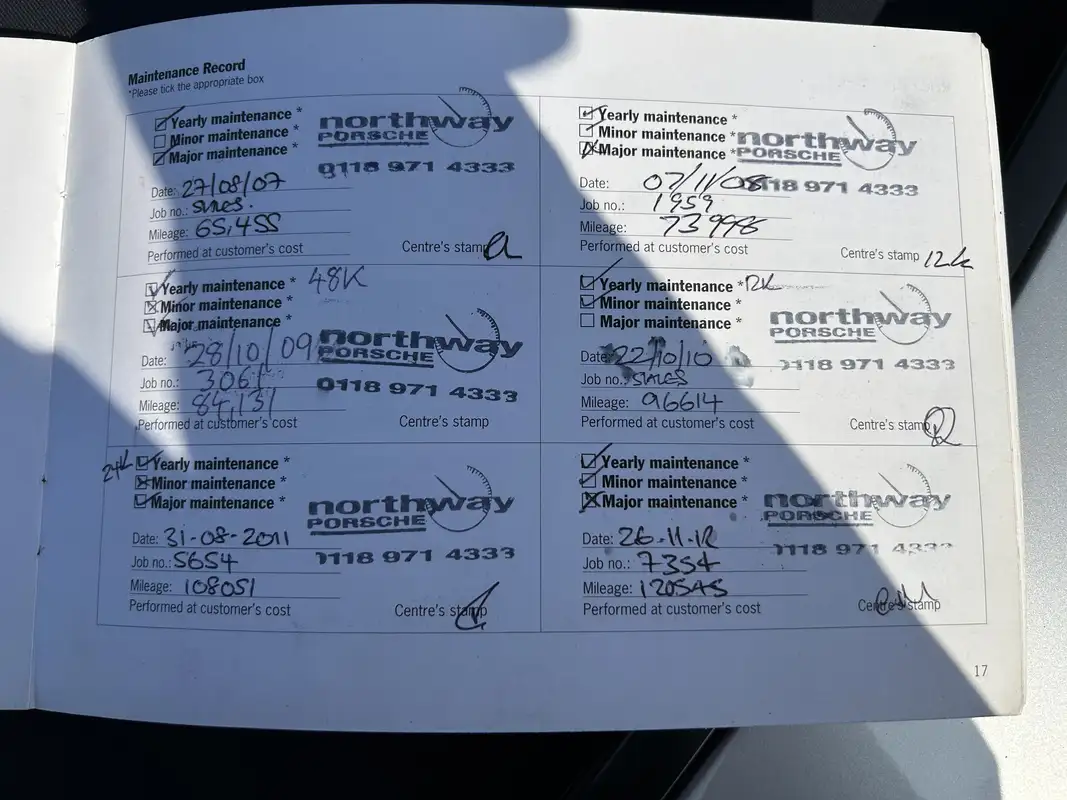 Maintenance Record
*Please tick the appropriate box
Yearly maintenance *
Minor maintenance *
Major maintenance *
northway
PORSCHE
0118 971 4333
Date: 27/08/07
Job no.: SALES.
Mileage: 65,455
Performed at customer's cost
Centre's stamp
Yearly maintenance *
Minor maintenance *
Major maintenance *
northway
PORSCHE
0118 971 4333
Date: 07/11/08
Job no.: 1959
Mileage: 73998
Performed at customer's cost
Centre's stamp 12k
Yearly maintenance * 48K
Minor maintenance *
Major maintenance *
northway
PORSCHE
0118 971 4333
Date: 28/10/09
Job no.:
Mileage: 84,131
Performed at customer's cost
Centre's stamp
Yearly maintenance * 12K
Minor maintenance *
Major maintenance *
northway
PORSCHE
0118 971 4333
Date: 22/10/10
Job no.: SALES
Mileage: 96614
Performed at customer's cost
Centre's stamp
24K Yearly maintenance *
Minor maintenance *
Major maintenance *
northway
PORSCHE
0118 971 4333
Date: 31-08-2011
Job no.: 5654
Mileage: 108051
Performed at customer's cost
Centre's stamp
Yearly maintenance *
Minor maintenance *
Major maintenance *
northway
PORSCHE
0118 971 4333
Date: 26.11.12
Job no.: 7354
Mileage: 120545
Performed at customer's cost
Centre's stamp
17